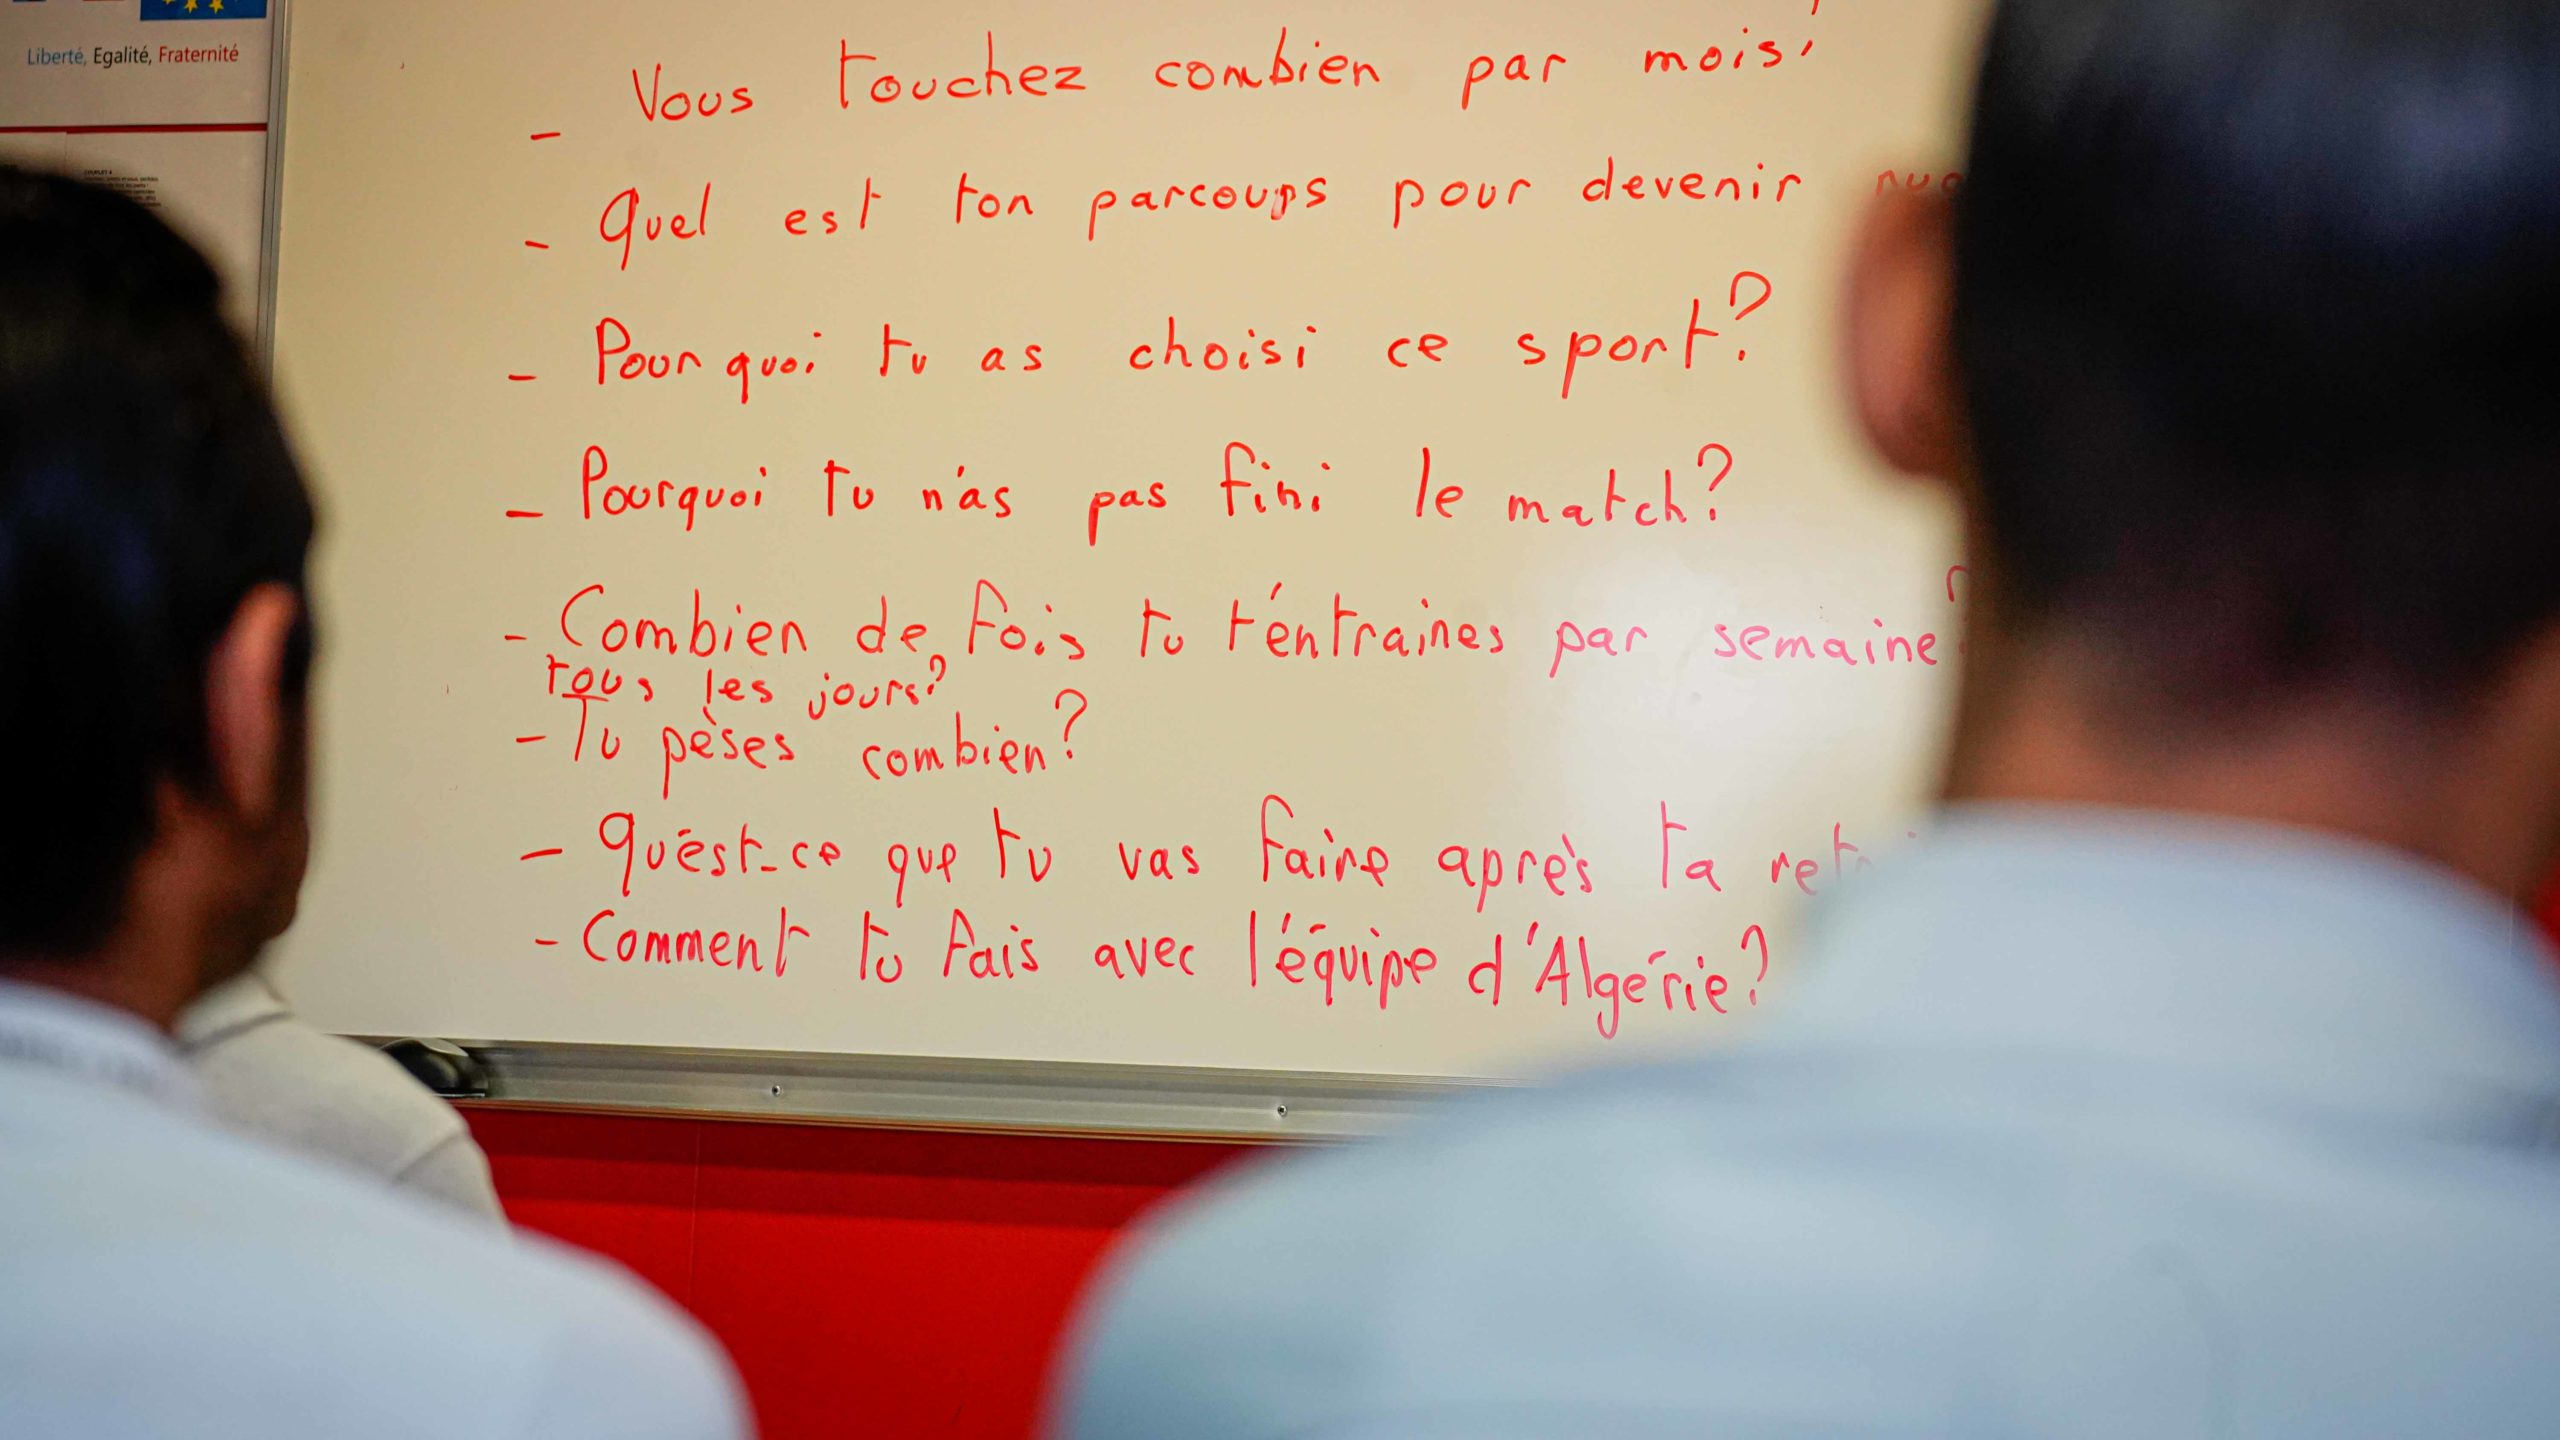 Liberté, Egalité, Fraternité
COUPLET 4
Vous touchez combien par mois?
- Quel est ton parcours pour devenir
- Pourquoi tu as choisi ce sport?
- Pourquoi tu n'as pas fini le match?
- Combien de fois tu t'entraines par semaine?
tous les jours?
- Tu pèses combien?
- Qu'est-ce que tu vas faire après ta
- Comment tu fais avec l'équipe d'Algérie?